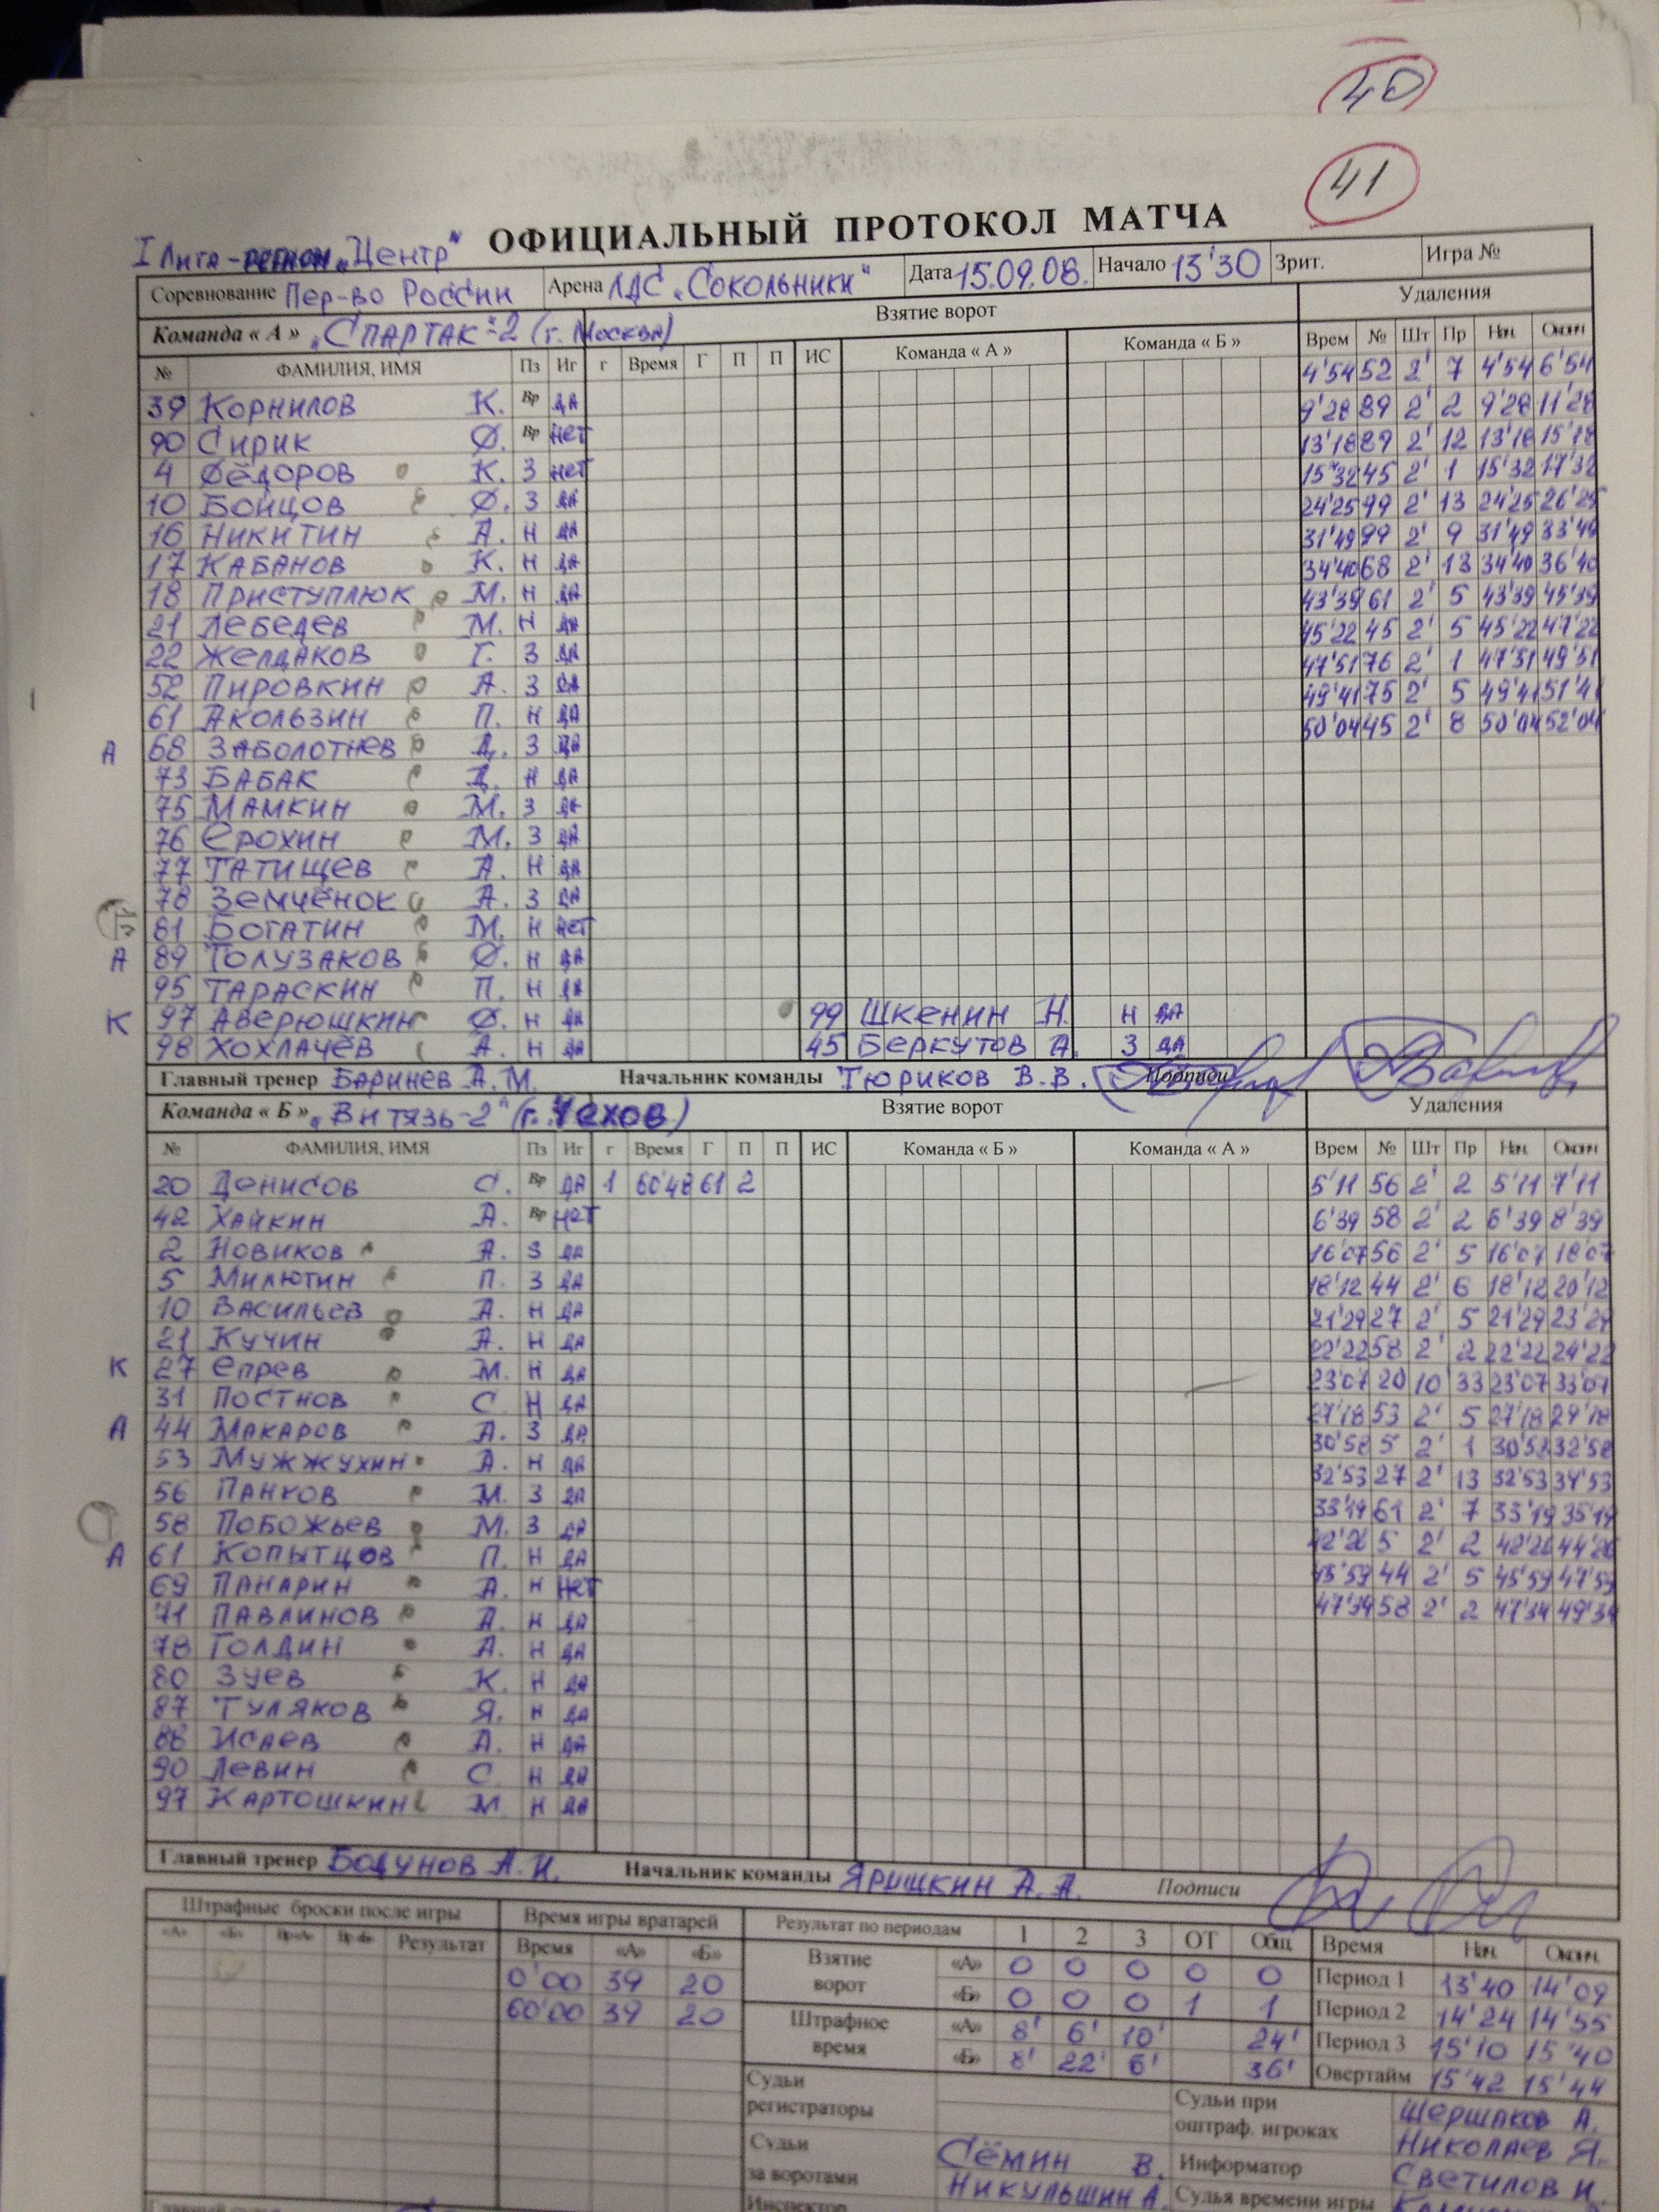 40
41
ОФИЦИАЛЬНЫЙ ПРОТОКОЛ МАТЧА
I Лига-регион „Центр"
Соревнование Пер-во России Арена ЛДС „Сокольники" Дата 15.09.08. Начало 13'30 Зрит. Игра №
Команда « А » „Спартак-2" (г. Москва) Взятие ворот Удаления
№ ФАМИЛИЯ, ИМЯ Пз Иг г Время Г П П ИС Команда « А » Команда « Б » Врем № Шт Пр Нач. Оконч
39 Корнилов К. Вр да 4'54 52 2' 7 4'54 6'54
90 Сирик Ф. Вр нет 9'28 89 2' 2 9'28 11'28
4 Фёдоров К. З нет 13'18 89 2' 12 13'18 15'18
10 Бойцов Ф. З да 15'32 45 2' 1 15'32 17'32
16 Никитин А. Н да 24'25 99 2' 13 24'25 26'25
17 Кабанов К. Н да 31'49 99 2' 9 31'49 33'49
18 Приступлюк М. Н да 34'40 68 2' 13 34'40 36'40
21 Лебедев М. Н да 43'39 61 2' 5 43'39 45'39
22 Желдаков Г. З да 45'22 45 2' 5 45'22 47'22
52 Пировкин А. З да 47'51 76 2' 1 47'51 49'51
61 Акользин П. Н да 49'41 75 2' 5 49'41 51'41
А 68 Заболотнев Д. З да 50'04 45 2' 8 50'04 52'04
73 Бабак Д. Н да
75 Мамкин М. З да
76 Ерохин М. З да
77 Татищев А. Н да
78 Земчёнок А. З да
81 Богатин М. Н нет
А 89 Толузаков Ф. Н да
95 Тараскин П. Н да
К 97 Аверюшкин Ф. Н да 99 Шкенин Н. Н да
98 Хохлачёв А. Н да 45 Беркутов А. З да
Главный тренер Баринев А.М. Начальник команды Тюриков В.В. Подписи
Команда « Б » „Витязь-2" (г. Чехов) Взятие ворот Удаления
№ ФАМИЛИЯ, ИМЯ Пз Иг г Время Г П П ИС Команда « Б » Команда « А » Врем № Шт Пр Нач. Оконч
20 Денисов С. Вр да 1 60'48 61 2 5'11 56 2' 2 5'11 7'11
42 Хайкин А. Вр нет 6'39 58 2' 2 6'39 8'39
2 Новиков А. З да 16'07 56 2' 5 16'07 18'07
5 Милютин П. З да 18'12 44 2' 6 18'12 20'12
10 Васильев А. Н да 21'29 27 2' 5 21'29 23'29
21 Кучин А. Н да 22'22 58 2' 2 22'22 24'22
К 27 Епрев М. Н да 23'07 20 10' 33 23'07 33'07
31 Постнов С. Н да 27'18 53 2' 5 27'18 29'18
А 44 Макаров А. З да 30'58 5 2' 1 30'58 32'58
53 Мужжухин А. Н да 32'53 27 2' 13 32'53 34'53
56 Панков М. З да 33'19 61 2' 7 33'19 35'19
58 Побожьев М. З да 42'26 5 2' 2 42'26 44'26
А 61 Копытцов П. Н да 45'59 44 2' 5 45'59 47'59
69 Панарин А. Н нет 47'34 58 2' 2 47'34 49'34
71 Павлинов А. Н да
78 Голдин А. Н да
80 Зуев К. Н да
87 Туляков Я. Н да
88 Исаев А. Н да
90 Левин С. Н да
97 Картошкин М. Н да
Главный тренер Бодунов А.И. Начальник команды Яришкин А.А. Подписи
Штрафные броски после игры Время игры вратарей Результат по периодам 1 2 3 ОТ Общ Время Нач. Оконч.
«А» «Б» Вр«А» Вр«Б» Результат Время «А» «Б» Взятие ворот «А» 0 0 0 0 0 Период 1 13'40 14'09
0'00 39 20 «Б» 0 0 0 1 1 Период 2 14'24 14'55
60'00 39 20 Штрафное время «А» 8' 6' 10' 24' Период 3 15'10 15'40
«Б» 8' 22' 6' 36' Овертайм 15'42 15'44
Судьи регистраторы Судьи при оштраф. игроках Шершаков А.
Николаев Я.
Судьи за воротами Сёмин В. Информатор Светилов И.
Никульшин А. Судья времени игры
Инспектор
Главный судья